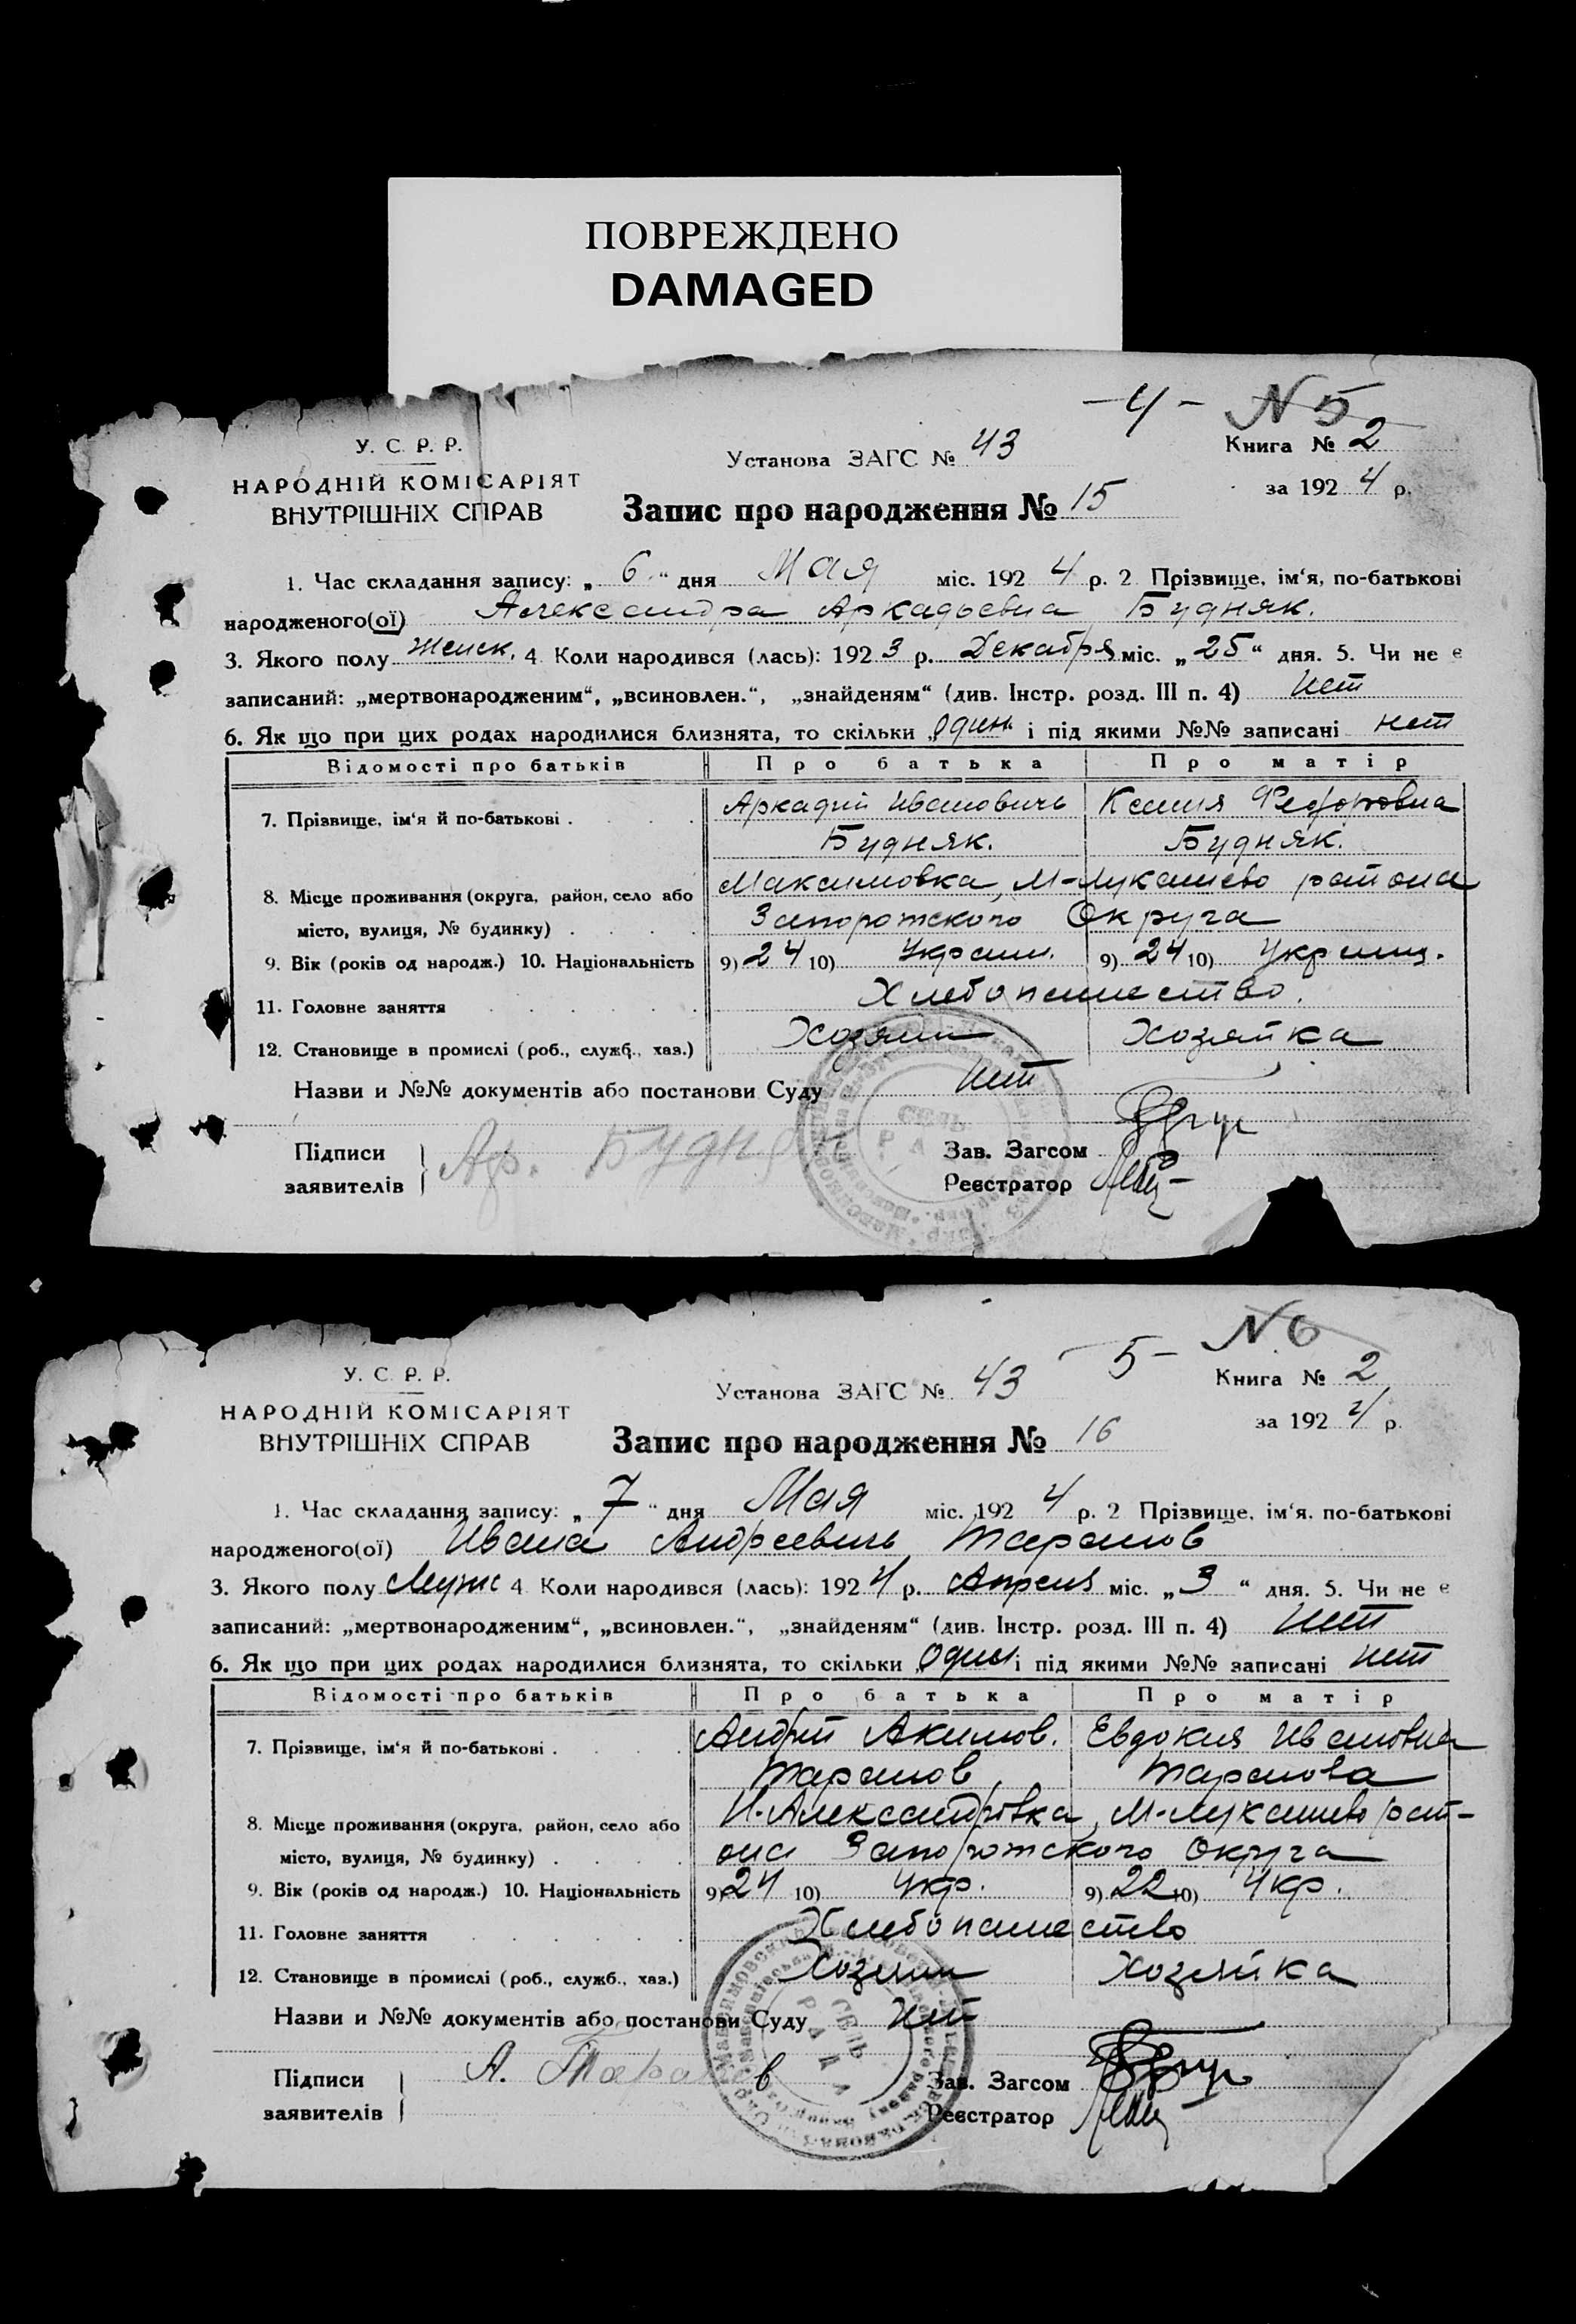 ПОВРЕЖДЕНО
DAMAGED
-4- N 5
У. С. Р. Р.
НАРОДНІЙ КОМІСАРІЯТ
ВНУТРІШНІХ СПРАВ
Установа ЗАГС № 43
Книга № 2
за 1924 р.
Запис про народження № 15
1. Час складання запису: „6“ дня Мая міс. 1924 р. 2 Прізвище, ім‘я, по-батькові
народженого(ої) Александра Аркадьевна Будняк.
3. Якого полу Женск. 4 Коли народився (лась): 1923 р. Декабря міс. „25“ дня. 5. Чи не є
записаний: „мертвонародженим“, „всиновлен.“, „знайденям“ (див. Інстр. розд. III п. 4) Нет
6. Як що при цих родах народилися близнята, то скільки „один“ і під якими №№ записані нет
Відомості про батьків Про батька Про матір
7. Прізвище, ім‘я й по-батькові . Аркадий Ивановичь Ксения Федоровна
Будняк. Будняк.
8. Місце проживання (округа, район, село або Максимовка, М-Лукашево района
місто, вулиця, № будинку) . Запорожского Округа
9. Вік (років од народж.) 10. Національність 9) 24 10) Украин. 9) 24 10) Украинц.
11. Головне заняття Хлебопашество.
12. Становище в промислі (роб., служб., хаз.) Хозяин Хозяйка
Назви и №№ документів або постанови Суду Нет
Підписи
заявителів
Ар. Будняк
СЕЛЬ
РАДА
Зав. Загсом
Реєстратор
-5- N 6
У. С. Р. Р.
НАРОДНІЙ КОМІСАРІЯТ
ВНУТРІШНІХ СПРАВ
Установа ЗАГС № 43
Книга № 2
за 1924 р.
Запис про народження № 16
1. Час складання запису: „7“ дня Мая міс. 1924 р. 2 Прізвище, ім‘я, по-батькові
народженого(ої) Ивана Андреевичь Таранов
3. Якого полу Мужс 4 Коли народився (лась): 1924 р. Апреля міс. „3“ дня. 5. Чи не є
записаний: „мертвонародженим“, „всиновлен.“, „знайденям“ (див. Інстр. розд. III п. 4) Нет
6. Як що при цих родах народилися близнята, то скільки „Один і під якими №№ записані нет
Відомості про батьків Про батька Про матір
7. Прізвище, ім‘я й по-батькові . Андрій Акимов. Евдокия Ивановна
Таранов Таранова
8. Місце проживання (округа, район, село або Н-Александровка, М-Лукашево рай-
місто, вулиця, № будинку) . она Запорожского Округа
9. Вік (років од народж.) 10. Національність 9) 24 10) Укр. 9) 22 10) Укр.
11. Головне заняття Хлебопашество
12. Становище в промислі (роб., служб., хаз.) Хозяин Хозяйка
Назви и №№ документів або постанови Суду Нет
Підписи
заявителів
А. Таранов
СЕЛЬ
РАДА
Зав. Загсом
Реєстратор